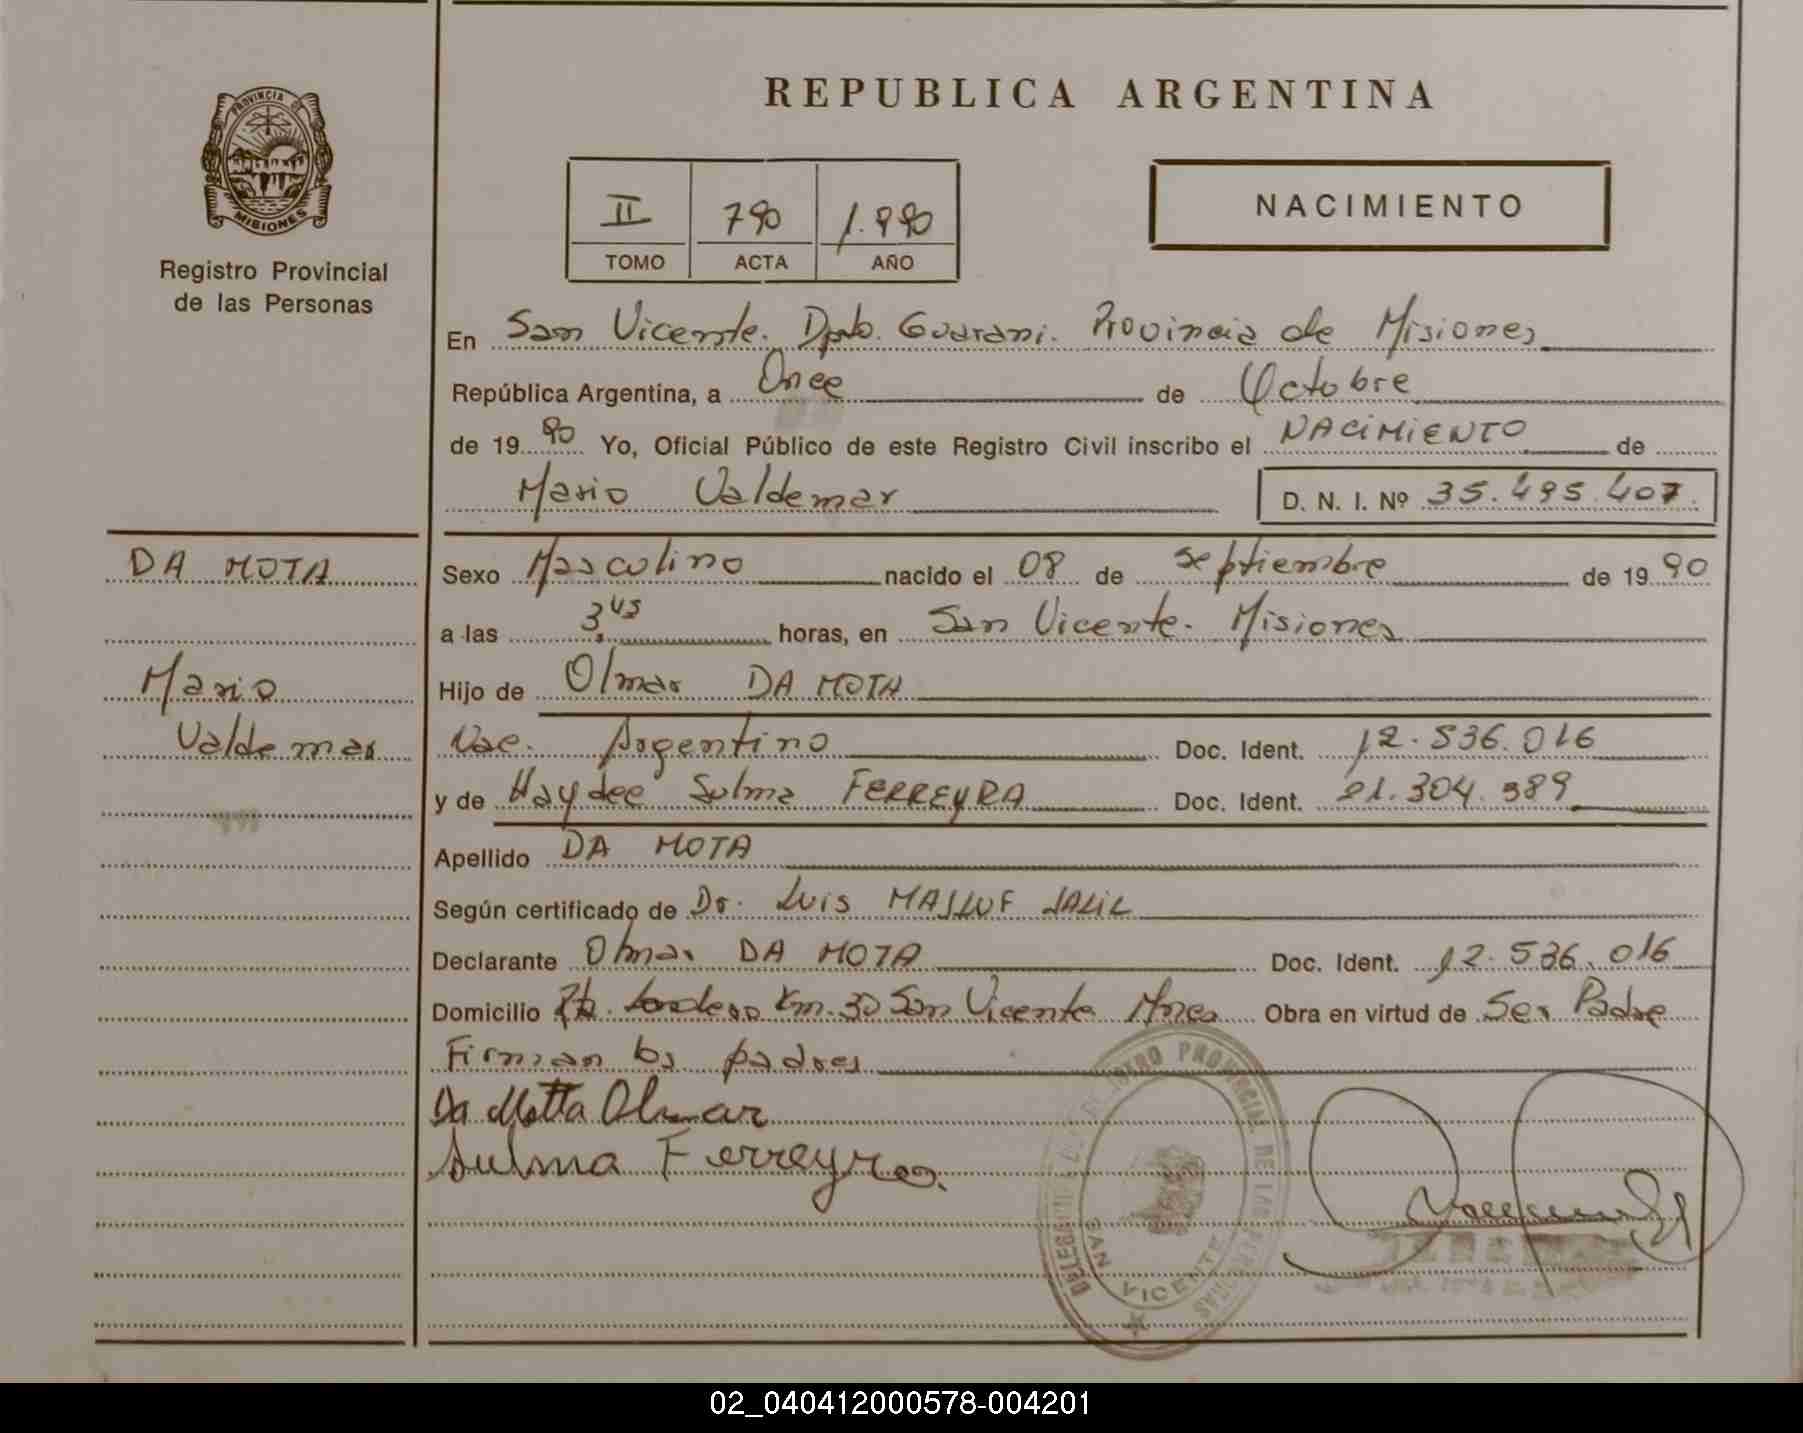 REPUBLICA ARGENTINA
PROVINCIA DE
MISIONES
Registro Provincial
de las Personas
II 790 1.990
TOMO ACTA AÑO
NACIMIENTO
En San Vicente. Dpto. Guarani. Provincia de Misiones
República Argentina, a Once de Octubre
de 19 90 Yo, Oficial Público de este Registro Civil inscribo el NACIMIENTO de
Mario Valdemar D. N. I. Nº 35.495.407.
DA MOTA
Mario
Valdemar
Sexo Masculino nacido el 08 de septiembre de 19 90
a las 3,45 horas, en San Vicente. Misiones
Hijo de Olmar DA MOTA
Nac. Argentino Doc. Ident. 12.536.016
y de Haydee Sulma FERREYRA Doc. Ident. 21.304.989
Apellido DA MOTA
Según certificado de Dr. Luis MASLUF JALIL
Declarante Olmar DA MOTA Doc. Ident. 12.536.016
Domicilio Km. 30 San Vicente Mnes Obra en virtud de Ser Padre
Firman los padres
Da Motta Olmar
Sulma Ferreyra.
DELEGACION REGISTRO PROVINCIAL DE LAS PERSONAS
SAN VICENTE
02_040412000578-004201